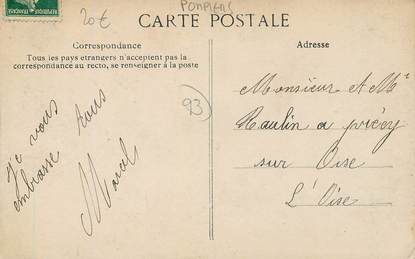 20€
POMPIERS
CARTE POSTALE
Correspondance
Tous les pays étrangers n'acceptent pas la
correspondance au recto, se renseigner à la poste
Je vous
embrasse tous
Marcel
93
Adresse
Monsieur et Me
Raulin a précy
sur Oise
L'Oise